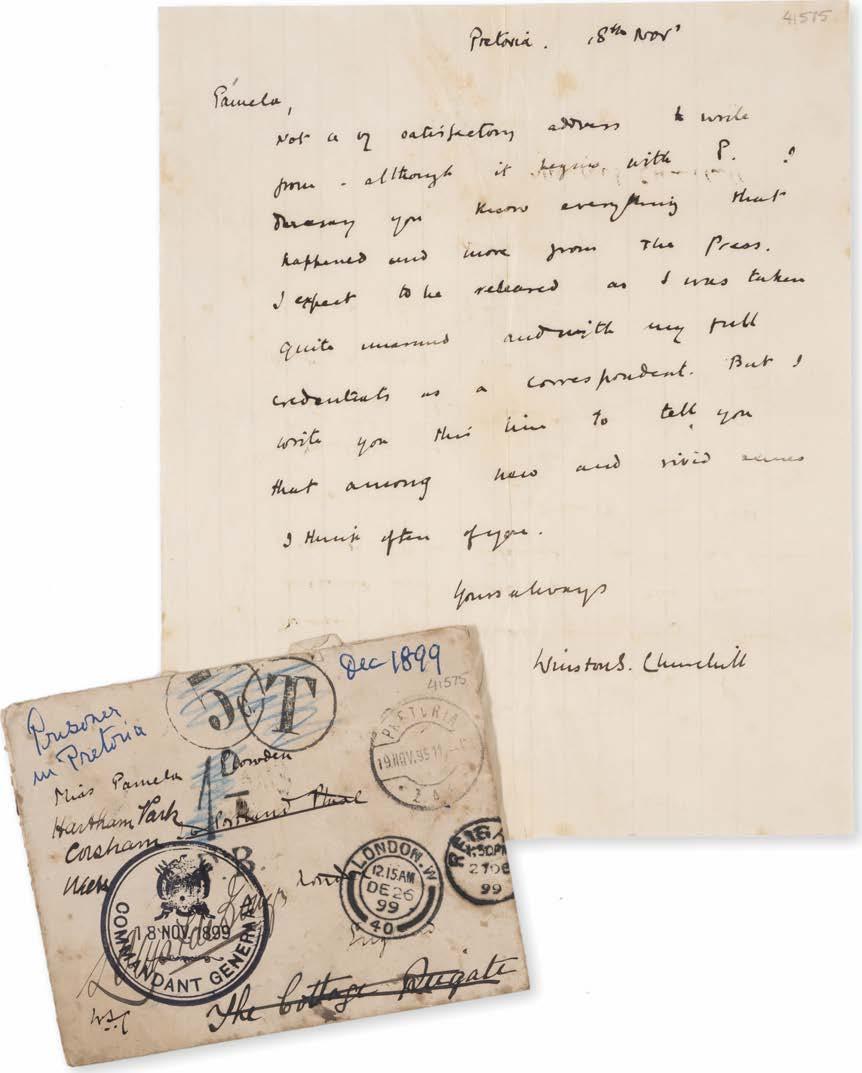 41575
Pretoria. 18th Nov
Pamela,
Not a vy satisfactory address to write
from - although it begins with P. I
Daresay you know everything that
happened and more from the Press.
I expect to be released as I was taken
quite unarmed and with my full
credentials as a correspondent. But I
write you this line to tell you
that among new and vivid scenes
I think often of you.
Yours always
Winston S. Churchill
Dec 1899
41575
5c. T
Prisoner
in Pretoria
PRETORIA
19.NOV.9911
Z.A.
Miss Pamela Plowden
Hartham Park
Portland Place
Corsham
Wilts
London
LONDON.W
12.15AM
DE 26
99
40
REIGA
1.30PM
27DE
99
COMMANDANT GENERAAL
18 NOV 1899
WSC
The Cottage Reigate